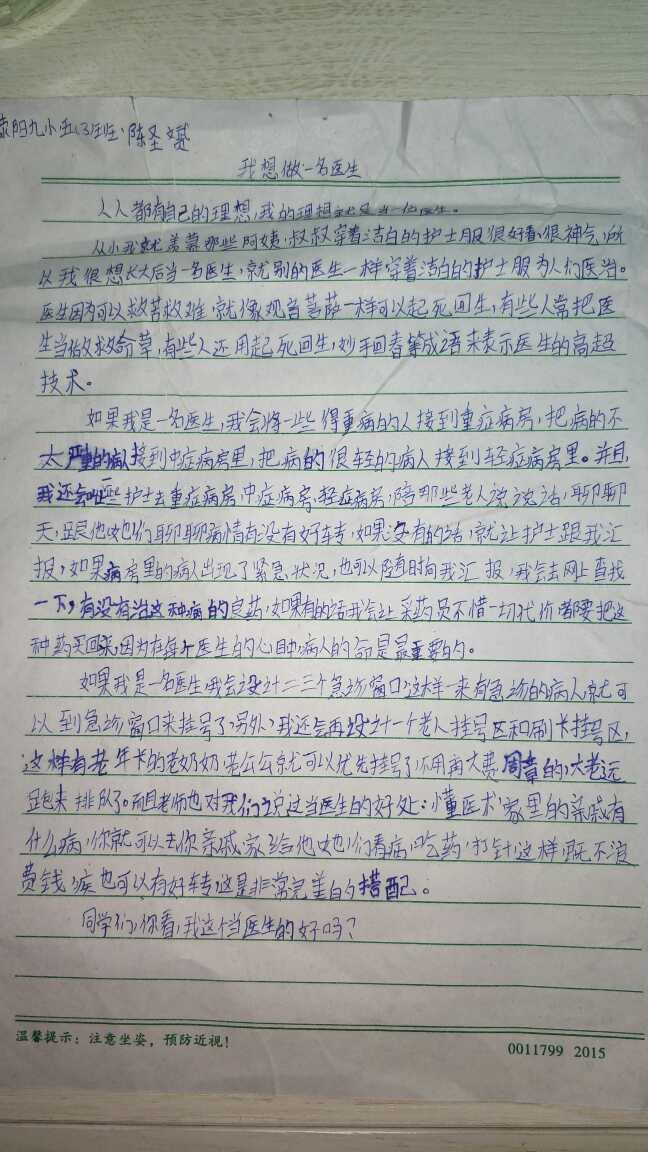 荥阳九小五(3)班 陈圣
我想做一名医生
人人都有自己的理想,我的理想就是当一位医生。
从小我就羡慕那些阿姨、叔叔穿着洁白的护士服很好看、很神气,所
以我很想长大后当一名医生,就别的医生一样穿着洁白的护士服为人们医治。
医生因为可以救苦救难,就像观音菩萨一样可以起死回生,有些人常把医
生当做救命草,有些人还用起死回生,妙手回春等成语来表示医生的高超
技术。
如果我是一名医生,我会将一些得重病的人接到重症病房,把病的不
太严重的病人接到中症病房里,把病的很轻的病人接到轻症病房里。并且,
我还会让些护士去重症病房,中症病房,轻症病房,陪那些老人说说话,聊聊
天,跟他她们聊聊病情有没有好转,如果没有的话,就让护士跟我汇
报,如果病房里的病人出现了紧急状况,也可以随时向我汇报,我会去网上查找
一下,有没有治这种病的良药,如果有的话我会让采药员不惜一切代价都要把这
种药买回来,因为在每个医生的心目中,病人的命是最重要的。
如果我是一名医生,我会设计二三个急诊窗口,这样一来有急诊的病人就可
以到急诊窗口来挂号了,另外,我还会再设计一个老人挂号区和刷卡挂号区,
这样有老年卡的老奶奶老公公就可以优先挂号了,不用再大费周章的,大老远
跑来排队了。而且老师也对我们说过当医生的好处:懂医术,家里的亲戚有
什么病,你就可以去你亲戚家给他她们看病,吃药,打针,这样既不浪
费钱,疾也可以有好转,这是非常完美的搭配。
同学们,你看,我这个当医生的好吗?
温馨提示:注意坐姿,预防近视!
0011799 2015